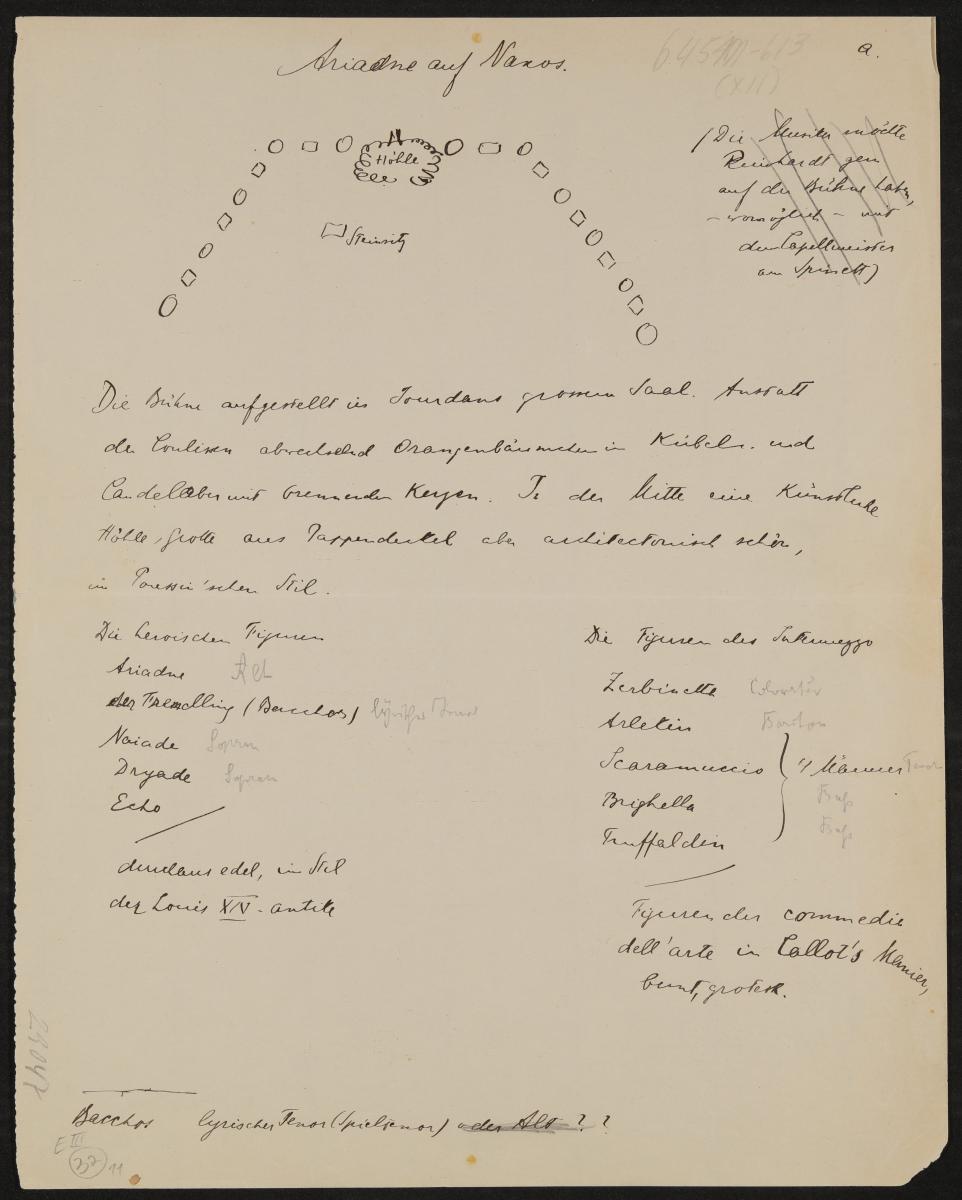 Ariadne auf Naxos.
a.
645 XII-613
(XII)
Höhle
Steinsitz
(Die Musiker möchte
Reinhardt gern
auf der Bühne haben,
– womöglich – mit
dem Capellmeister
am Spinett)
Die Bühne aufgestellt in Jourdans grossem Saal. Anstatt
der Coulissen abwechselnd Orangenbäumchen in Kübeln und
Candelaber mit brennenden Kerzen. In der Mitte eine Künstliche
Höhle, Grotte aus Pappendeckel aber architectonisch schön,
im Poussin'schen Stil.
Die heroischen Figuren
Ariadne Alt
der Fremdling (Bacchos) lyrischer Tenor
Naiade Sopran
Dryade Sopran
Echo
durchaus edel, im Stil
der Louis XIV-antike
Die Figuren des Intermezzo
Zerbinetta Coloratur
Arlekin Bariton
Scaramuccio 4 Männer Tenor
Brighella Baß
Truffaldin Baß
Figuren der commedia
dell'arte in Callot's Manier,
bunt, grotesk.
Bacchos lyrischer Tenor (Spieltenor) oder Alt ??
E III
32 11